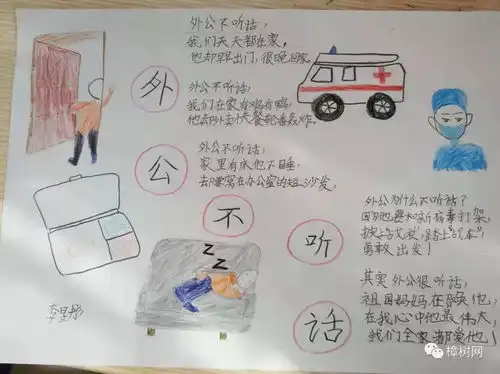 外公不听话
外公不听话,
我们天天都在家,
他却早早出门,很晚回家。
外公不听话,
我们在家有鸡有鸭,
他却外卖快餐轮番轰炸。
外公不听话,
家里有床他不睡,
却睡窝在办公室的短沙发。
外公为什么不听话?
因为他要和新病毒打架,
披上白大衣,踏上"战车",
勇敢出发!
其实外公很听话,
祖国妈妈在唤他,
在我心中他最伟大,
我们全家都爱他!
李里彤
樟树网